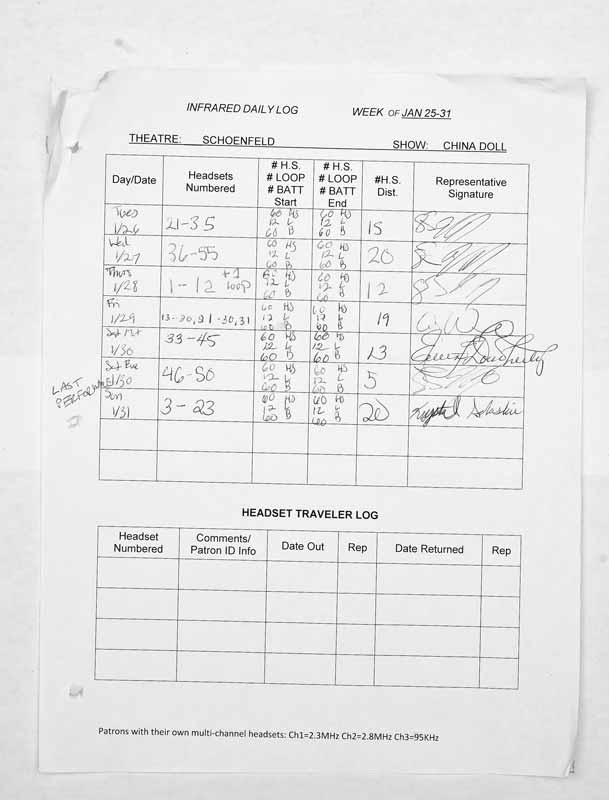 INFRARED DAILY LOG WEEK OF JAN 25-31
THEATRE: SCHOENFELD SHOW: CHINA DOLL
Day/Date Headsets Numbered # H.S. # LOOP # BATT Start # H.S. # LOOP # BATT End #H.S. Dist. Representative Signature
Tues 1/26 21-35 60 HS 12 L 60 B 60 HS 12 L 60 B 15
Wed 1/27 36-55 60 HS 12 L 60 B 60 HS 12 L 60 B 20
Thurs 1/28 1-12 +1 loop 60 HS 12 L 60 B 60 HS 12 L 60 B 12
Fri 1/29 13-20, 21-30, 31 60 HS 12 L 60 B 60 HS 12 L 60 B 19
Sat Mat 1/30 33-45 60 HS 12 L 60 B 60 HS 12 L 60 B 13
Sat Eve 1/30 46-50 60 HS 12 L 60 B 60 HS 12 L 60 B 5
LAST PERFORMANCE
Sun 1/31 3-23 60 HS 12 L 60 B 60 HS 12 L 60 20
HEADSET TRAVELER LOG
Headset Numbered Comments/ Patron ID Info Date Out Rep Date Returned Rep
Patrons with their own multi-channel headsets: Ch1=2.3MHz Ch2=2.8MHz Ch3=95KHz